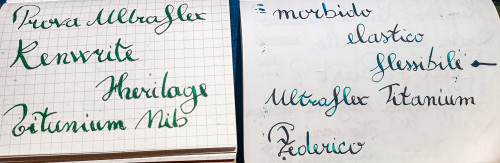 Prova Ultraflex
Kenwrite
Heritage
Titanium Nib
morbido
elastico
flessibile
Ultraflex Titanium
Federico